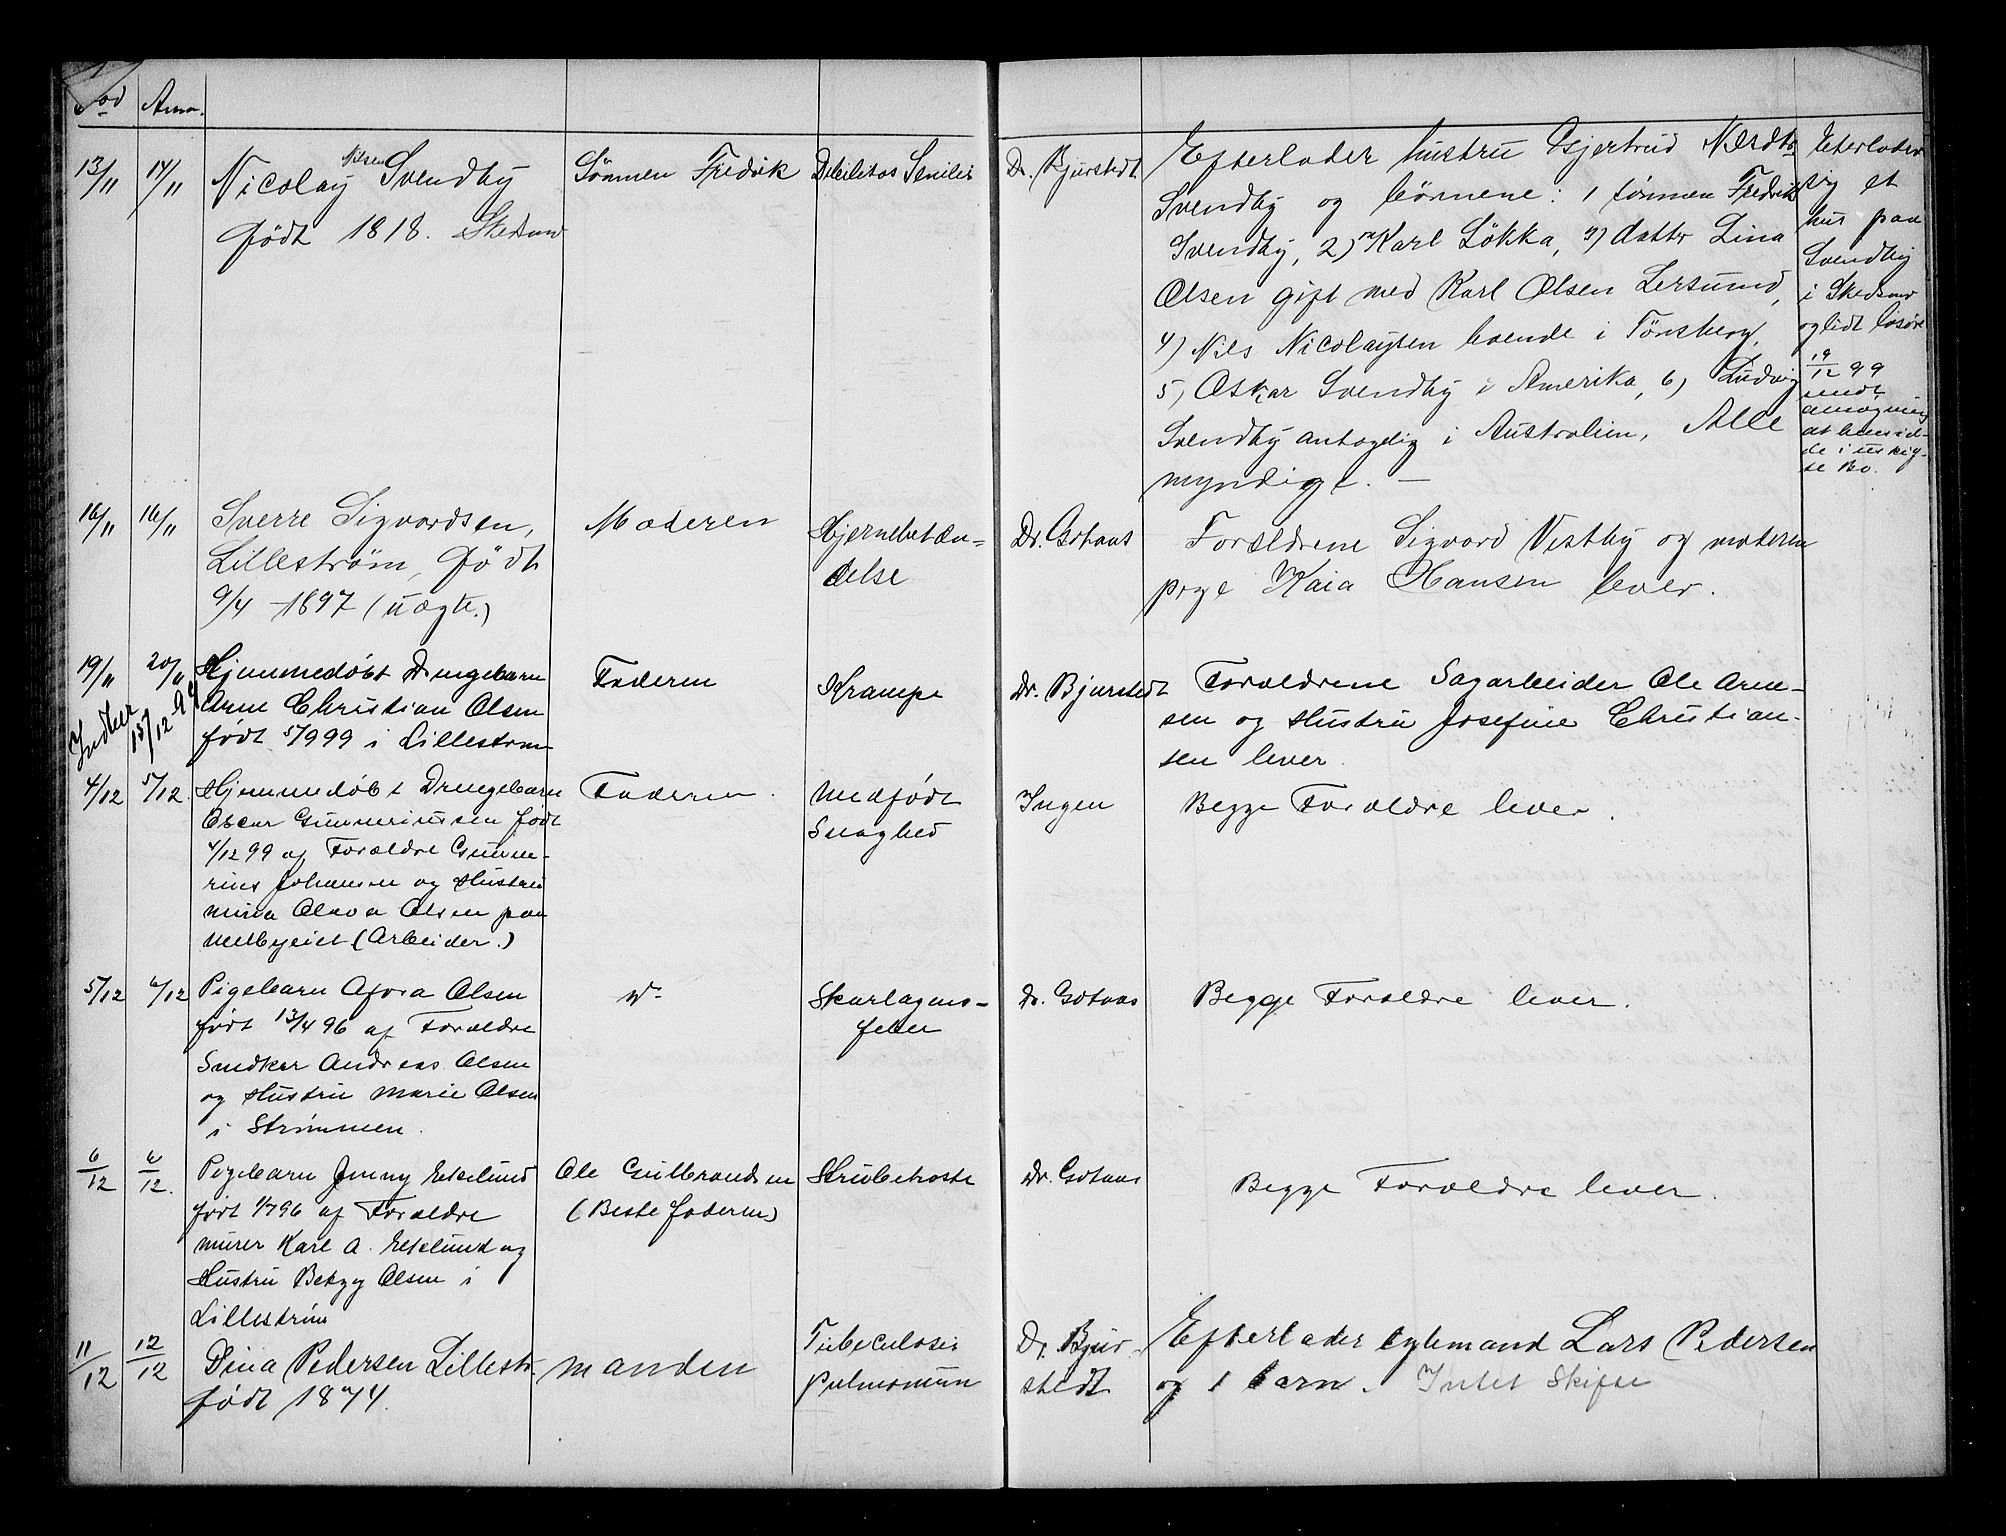 Död Anm.
13/11 14/11 Nicolay Nilsen Svendby Sönnen Fredrik Debilitas Senilis Dr. Bjurstedt Efterlader hustru Gjertrud Nordby Eterlader
født 1818. Skedsmo
Svendby og börnene: 1 sönnen Fredrik sig et
Svendby, 2) Karl Lökka, 3) datter Lina hus paa
Olsen gift med Karl Olsen Lersund, Svendby
4) Nils Nicolaysen boende i Tönsberg, i Skedsmo
5) Oskar Svendby i Amerika, 6) Ludvig og lidt løsøre
Svendby antagelig i Australien, Alle
myndige. —
19/12 99
medt
at hensid-
de i uskif-
te Bo.
16/11 16/11 Sverre Sigvardsen, Moderen Hjernebetæn= Dr. Gotaas Forældrene Sigvard Vestby og moderen
Lillestrøm, født delse pige Kaia Hansen lever.
9/4 1897 (uægte.)
19/11 20/11 Hjemmedöbt Drengebarn Faderen Krampe Dr. Bjurstedt Forældrene Sagarbeider Ole Arne-
Arne Christian Olsen sen og Hustru Josefine Christian-
født 5/9 99 i Lillestrøm sen lever.
Indber 15/12 99
4/12 5/12 Hjemmedöbt Drengebarn Faderen. Medfødt Ingen Begge Forældre lever.
Oscar Gunneriussen født Svaghed
4/12 99 af Forældre Gunne-
rius Johansen og Hustru
Mina Olava Olsen paa
Melbyeiet (Arbeider.)
5/12 6/12 Pigebarn Afora Olsen Skarlagens- Dr. Gotaas Begge Forældre lever.
født 13/4 96 af Forældre feber
Snedker Andreas Olsen
og Hustru Marie Olsen
i Strømmen.
6/12 6/12 Pigebarn Jenny Ekelund Ole Gulbrandsen Strubehoste Dr. Gotaas Begge Forældre lever.
født 1/7 96 af Forældre (Bestefaderen)
murer Karl A. Ekelund og
Hustru Betzy Olsen i
Lillestrøm
11/12 12/12 Dina Pedersen Lillestr. manden Tubeculosis Dr. Bjur- Efterlader egtemand Lars Pedersen
født 1874. Pulmomum stedt og 1 barn. Intet Skifte